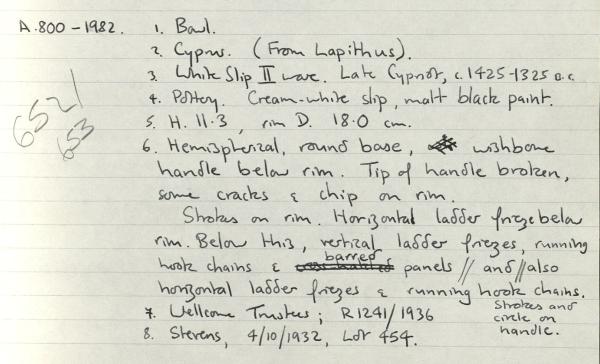 A.800-1982. 1. Bowl.
2. Cyprus. (From Lapithus).
3. White Slip II ware. Late Cypriot, c.1425-1325 B.C.
4. Pottery. Cream-white slip, matt black paint.
5. H. 11.3, rim D. 18.0 cm.
6. Hemispherical, round base, wishbone
handle below rim. Tip of handle broken,
some cracks & chip on rim.
Strokes on rim. Horizontal ladder frieze below
rim. Below this, vertical ladder friezes, running
hook chains & barred panels // and // also
horizontal ladder friezes & running hook chains.
Strokes and
circle on
handle.
7. Wellcome Trustees; R1241/1936
8. Stevens, 4/10/1932, Lot 454.
6521
653